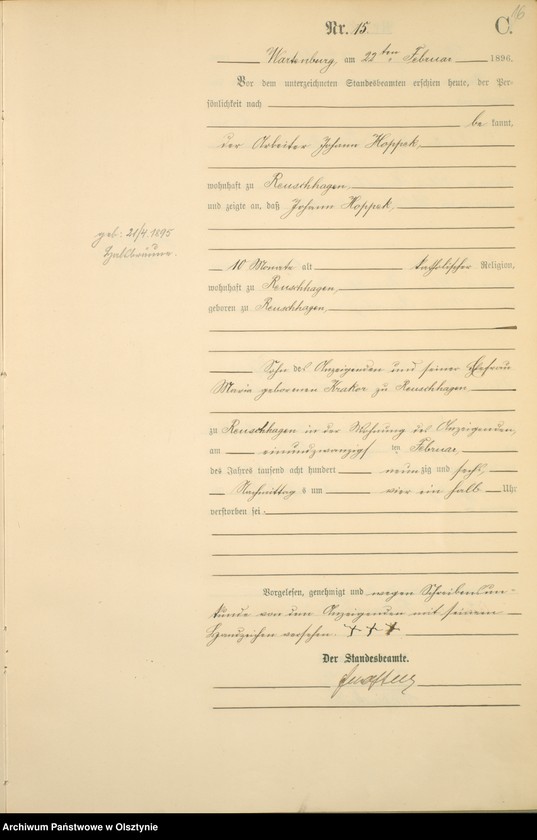 16
Nr. 15.
C.
Wartenburg, am 22ten Februar 1896.
Vor dem unterzeichneten Standesbeamten erschien heute, der Per-
sönlichkeit nach
be kannt,
der Arbeiter Johann Hoppek,
wohnhaft zu Reuschhagen,
und zeigte an, daß Johann Hoppek,
geb: 21/4. 1895
Halsbräune.
10 Monate alt katholischer Religion,
wohnhaft zu Reuschhagen,
geboren zu Reuschhagen,
Sohn des Anzeigenden und seiner Ehefrau
Maria geborenen Krakor zu Reuschhagen
zu Reuschhagen in der Wohnung des Anzeigenden,
am einundzwanzigsten Februar
des Jahres tausend acht hundert neunzig und sechs,
Nachmittags um vier ein halb Uhr
verstorben sei.
Vorgelesen, genehmigt und wegen Schreibensun-
kunde von dem Anzeigenden mit seinem
Handzeichen versehen. + + +
Der Standesbeamte.
Archiwum Państwowe w Olsztynie